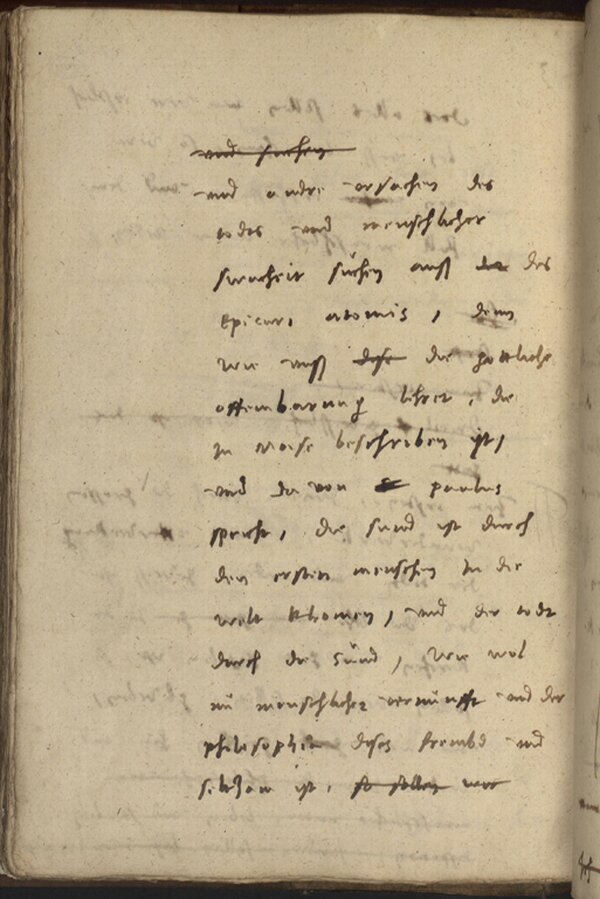 und suchen
und andre ursachen des
todts und menschlicher
swacheit suchen auß der des
Epicuri atomis, denn
wie unß dise die gottliche
offembarung lehret, die
in Moise beschriben ist,
und da von S paulus
spricht, die sund ist durch
den ersten menschen in die
welt khomen, und der todt
durch die sünd, wie wol
nu menschlicher vernunfft und der
philosophia dises frembd und
seltzam ist, so sollen wir